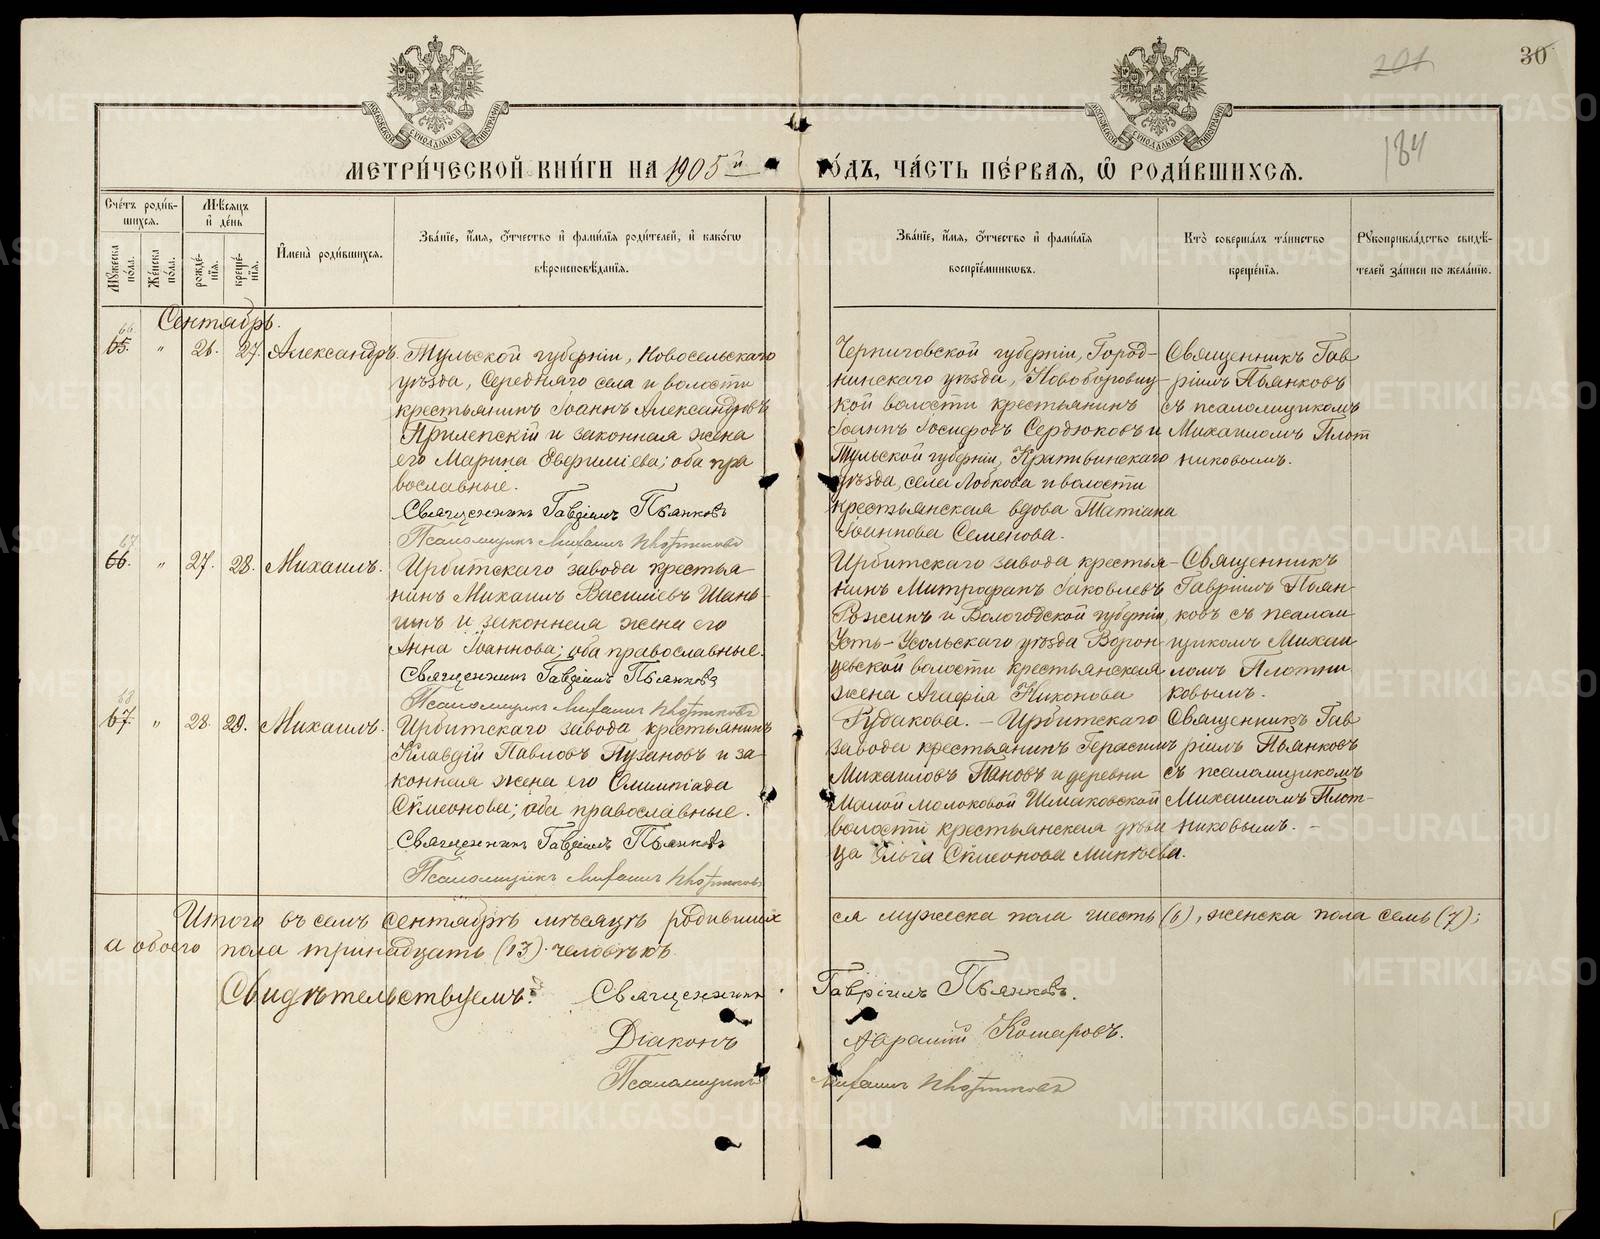 30
201
184
МЕТРИ́ЧЕСКОЙ КНИ́ГИ НА 1905й ГО́ДЪ, ЧА́СТЬ ПЕ́РВАЯ, Ѡ РОДИ́ВШИХСЯ.
Сче́тъ роди́в-
шихся.
Му́жеска по́ла.
Же́нска по́ла.
Мѣ́сяцъ и҆ де́нь
рожде́-нїя.
креще́-нїя.
И҆мена̀ роди́вшихся.
Зва́нїе, и҆́мя, ѻ҆́тчество и҆ фами́лїя роди́телей, и҆ како́гѡ
вѣроисповѣ́данїя.
Зва́нїе, и҆́мя, ѻ҆́тчество и҆ фами́лїя
воспрїе́мникѡвъ.
Кто̀ соверша́лъ та́инство
креще́нїя.
Рꙋкоприкла́дство свидѣ́-
телей за́писи по жела́нїю.
Сентябрь.
66
65. " 26. 27. Александръ.
Тульской губерніи, Новосельскаго
уѣзда, Середняго села и волости
крестьянинъ Іоаннъ Александровъ
Прилепскій и законная жена
его Марина Евфиміева; оба пра
вославные.
Священникъ Гавріилъ Пьянковъ
Псаломщикъ Михаилъ Плотниковъ
Черниговской губерніи, Город-
нинскаго уѣзда, Новоборовиц-
кой волости крестьянинъ
Іоаннъ Іосифовъ Сердюковъ и
Тульской губерніи, Крапивинскаго
уѣзда, села Лобкова и волости
крестьянская вдова Татіана
Іоаннова Семенова.
Священникъ Гав
ріилъ Пьянковъ
съ псаломщикомъ
Михаиломъ Плот
никовымъ.
67
66. " 27. 28. Михаилъ.
Ирбитскаго завода крестья-
нинъ Михаилъ Василіевъ Шань-
инъ и законная жена его
Анна Іоаннова; оба православные.
Священникъ Гавріилъ Пьянковъ
Псаломщикъ Михаилъ Плотниковъ
Ирбитскаго завода крестья-
нинъ Митрофанъ Іаковлевъ
Рожинъ и Вологодской губерніи,
Усть-Усольскаго уѣзда Ворон-
цевской волости крестьянская
жена Агафія Никонова
Рудакова. -
Священникъ
Гавріилъ Пьян-
ковъ съ псалом
щикомъ Михаи
ломъ Плотни
ковымъ.
68
67. " 28. 29. Михаилъ.
Ирбитскаго завода крестьянинъ
Клавдій Павловъ Пузановъ и за-
конная жена его Олимпіада
Сѵмеонова; оба православные.
Священникъ Гавріилъ Пьянковъ
Псаломщикъ Михаилъ Плотниковъ
Ирбитскаго
завода крестьянинъ Герасимъ
Михаиловъ Пановъ и деревни
Малой Молоковой Шмаковской
волости крестьянская дѣви
ца Ольга Сѵмеонова Минѣева.
Священникъ Гав
ріилъ Пьянковъ
съ псаломщикомъ
Михаиломъ Плот-
никовымъ. -
Итого въ семъ сентябрѣ мѣсяцѣ родивших ся мужеска пола шесть (6), женска пола семь (7);
а обоего пола тринадцать (13) человѣкъ
Свидѣтельствуемъ: Священникъ Гавріилъ Пьянковъ.
Діаконъ Авраамій Комаровъ.
Псаломщикъ Михаилъ Плотниковъ
METRIKI.GASO-URAL.RU